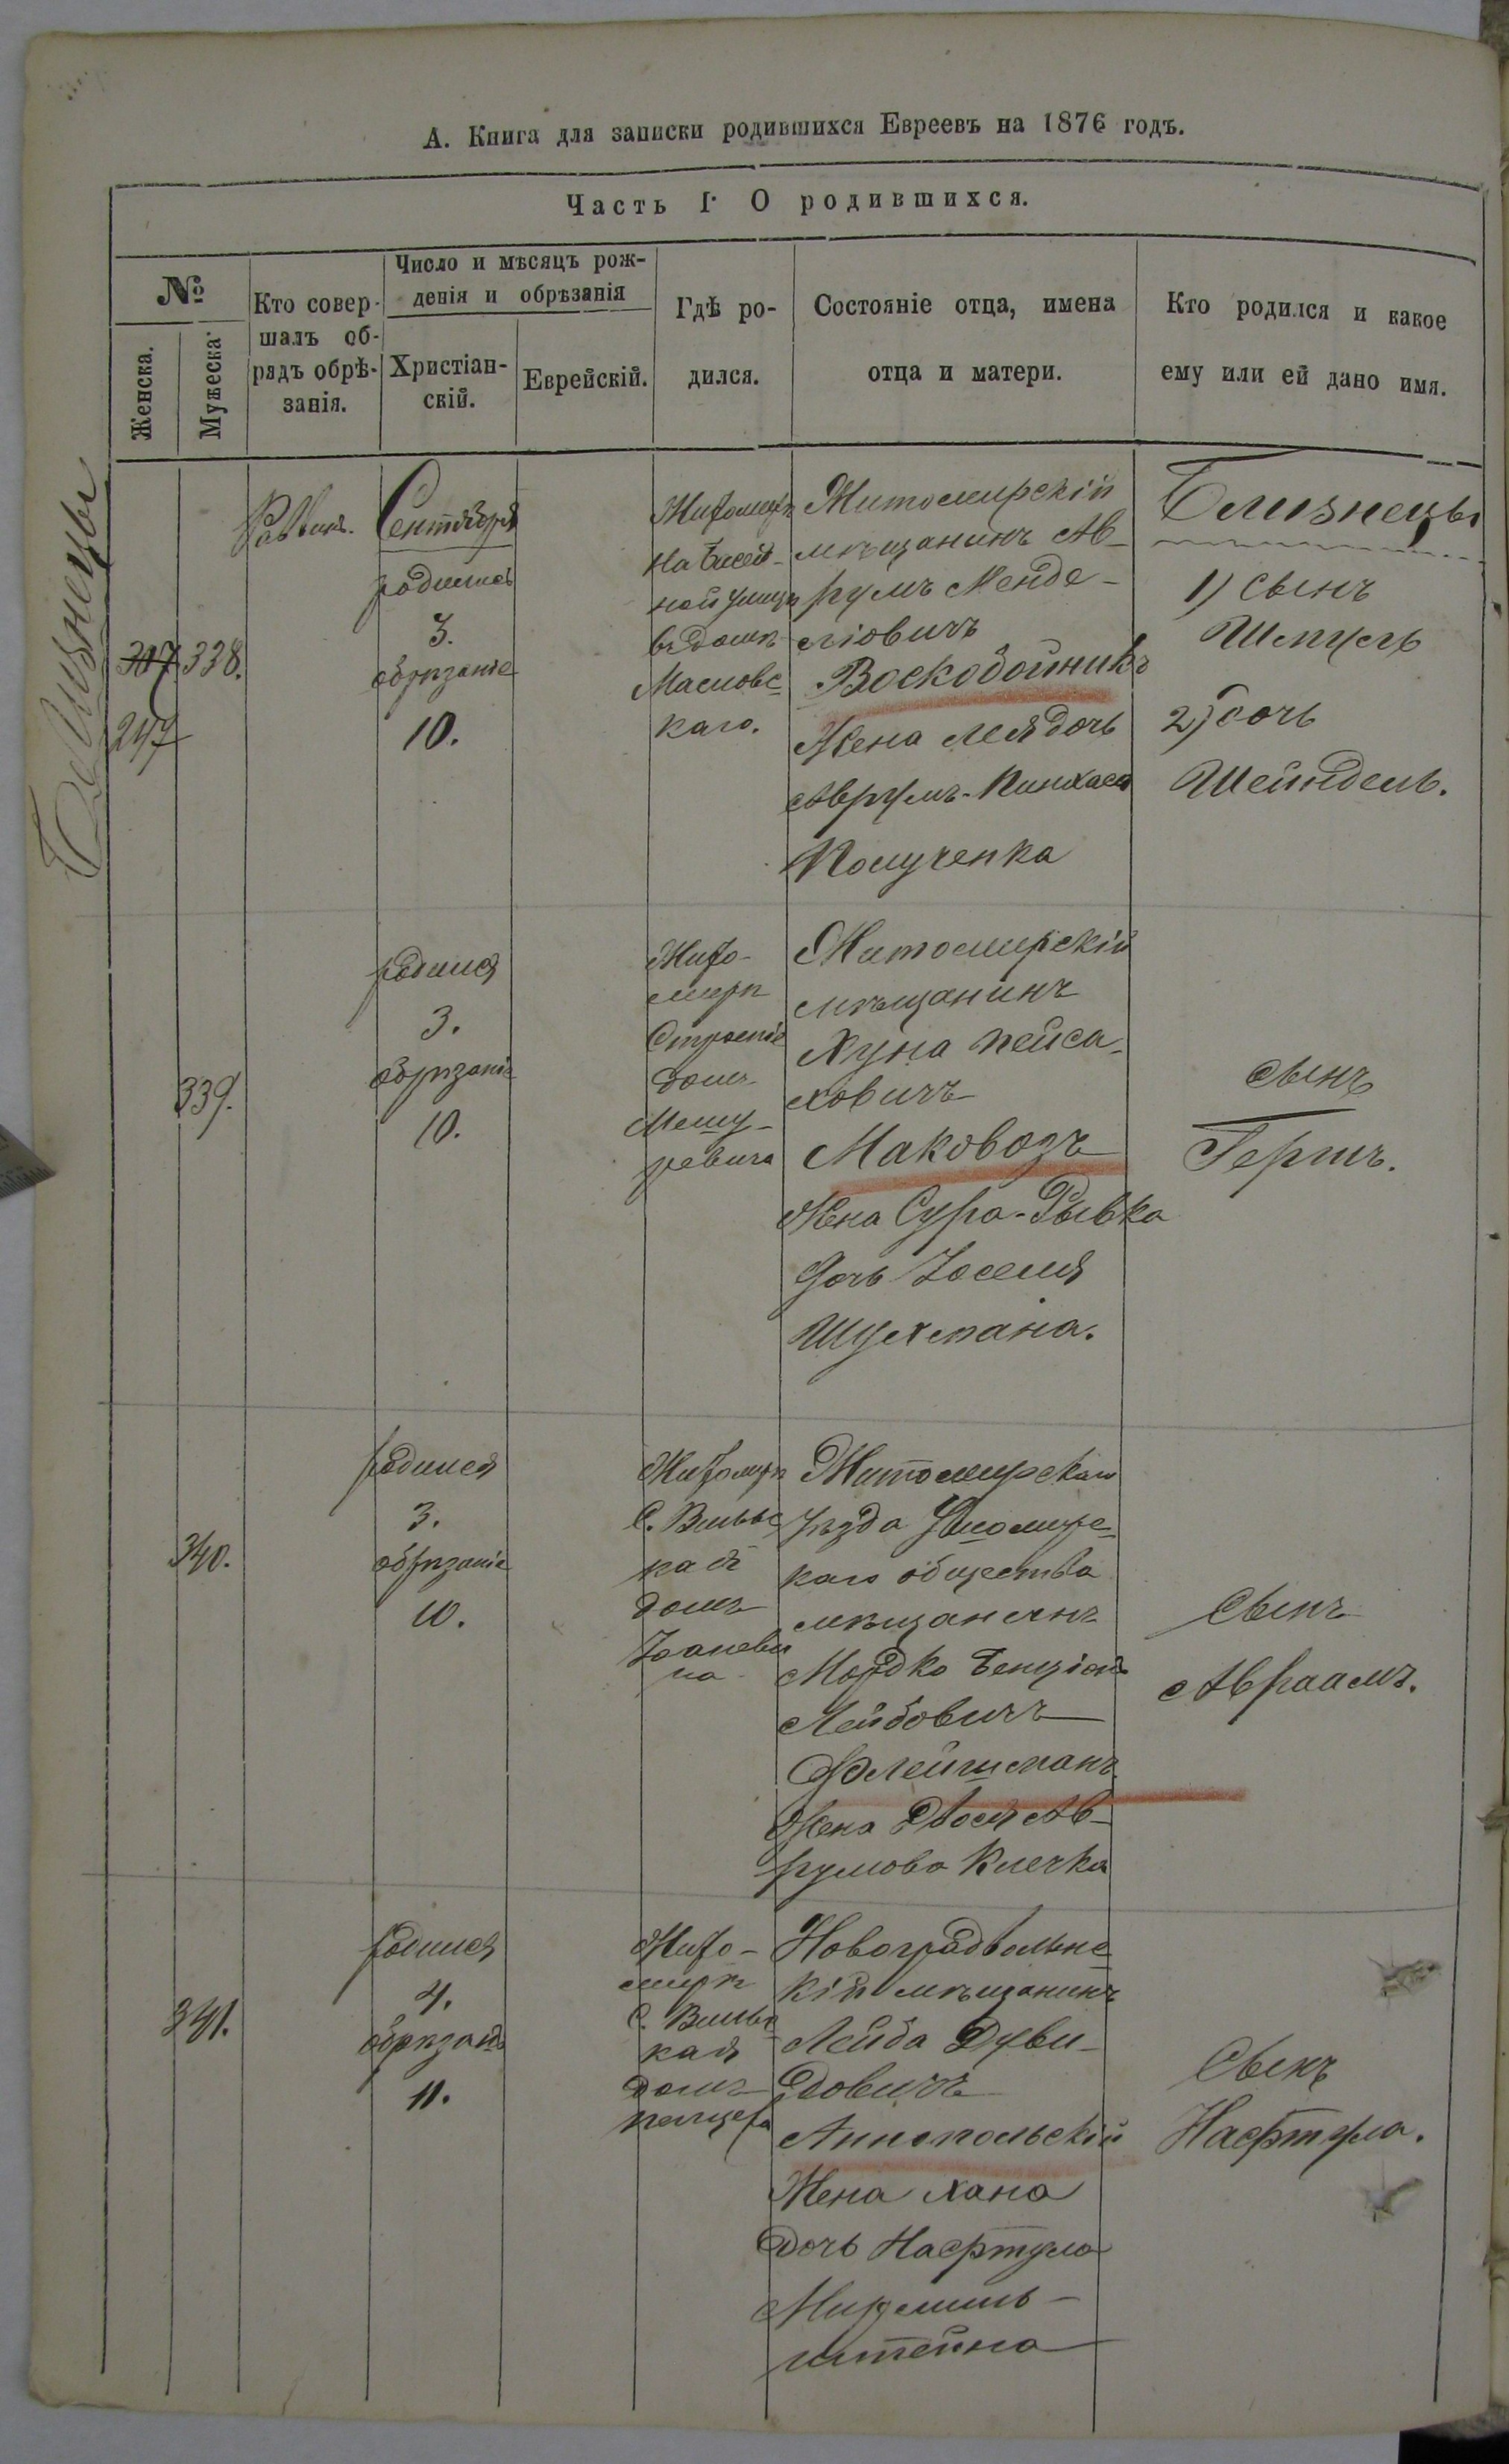 А. Книга для записки родившихся Евреевъ на 1876 годъ.
Часть I. О родившихся.
№
Женска.
Мужеска.
Кто совер-
шалъ об-
рядъ обрѣ-
занія.
Число и мѣсяцъ рож-
денія и обрѣзанія
Христіан-
скій.
Еврейскій.
Гдѣ ро-
дился.
Состояніе отца, имена
отца и матери.
Кто родился и какое
ему или ей дано имя.
Близнецы
307
247
338.
Раввинъ.
Сентября
родились
3.
обрѣзаніе
10.
Житомірѣ
на
ной улицѣ
въ домѣ
Масловс-
каго.
Житомирскій
мѣщанинъ Ав-
румъ Менде-
ліовичъ
Воскобойникъ
Жена Лея дочь
Аврумъ-Пинхаса
Близнецы
1) Сынъ
Шмуель
2) Дочь
Шейндель.
339.
родился
3.
обрѣзаніе
10.
Жито-
мирѣ
Строеніе
домъ
ревича
Житомирскій
мѣщанинъ
Хуна Пейса-
ховичъ
Маковозъ
Жена Сура-Рывка
Дочь Іоселя
Шухмана.
Сынъ
Гершъ.
340.
родился
3.
обрѣзаніе
10.
Житомирѣ
С. Вильс
кая
домъ
Житомирскаго
уѣзда
каго общества
мѣщанинъ
Мордко Бенціонъ
Лейбовичъ
Флейшманъ.
Жена Двося Ав-
румова Клечка
Сынъ
Авраамъ.
341.
родился
4.
обрѣзаніе
11.
Жито-
мирѣ
С. Вильс
кая
домъ
Новоградвольнс
кій мѣщанинъ
Лейба Дуви-
довичъ
Аннопольскій
Жена Хана
Дочь Нафтула
штейна
Сынъ
Нафтула.